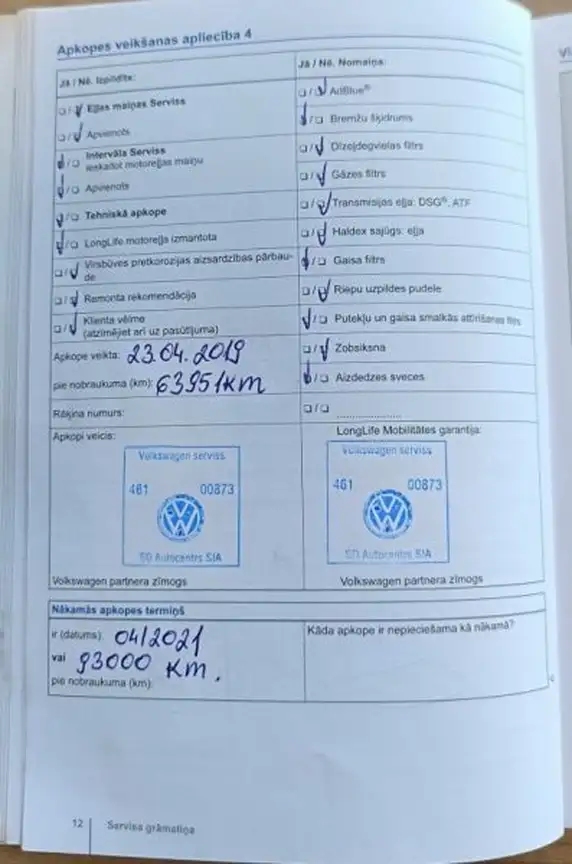 Apkopes veikšanas apliecība 4
Jā / Nē. Izpildīts:
Eļļas maiņas Serviss
Apvienots
Intervāla Serviss
ieskaitot motoreļļas maiņu
Apvienots
Tehniskā apkope
LongLife motoreļļa izmantota
Virsbūves pretkorozijas aizsardzības pārbau-
de
Remonta rekomendācija
Klienta vēlme
(atzīmējiet arī uz pasūtījuma)
Apkope veikta: 23.04.2019
pie nobraukuma (km): 63951km
Rēķina numurs:
Jā / Nē. Nomaiņa:
AdBlue®
Bremžu šķidrums
Dīzeļdegvielas filtrs
Gāzes filtrs
Transmisijas eļļa: DSG®, ATF
Haldex sajūgs: eļļa
Gaisa filtrs
Riepu uzpildes pudele
Putekļu un gaisa smalkās attīrīšanas filtrs
Zobsiksna
Aizdedzes sveces
Apkopi veicis:
Volkswagen serviss
461 00873
SD Autocentrs SIA
Volkswagen partnera zīmogs
LongLife Mobilitātes garantija:
Volkswagen serviss
461 00873
SD Autocentrs SIA
Volkswagen partnera zīmogs
Nākamās apkopes termiņš
ir (datums): 04/2021
vai 93000 km.
pie nobraukuma (km):
Kāda apkope ir nepieciešama kā nākamā?
12 Servisa grāmatiņa